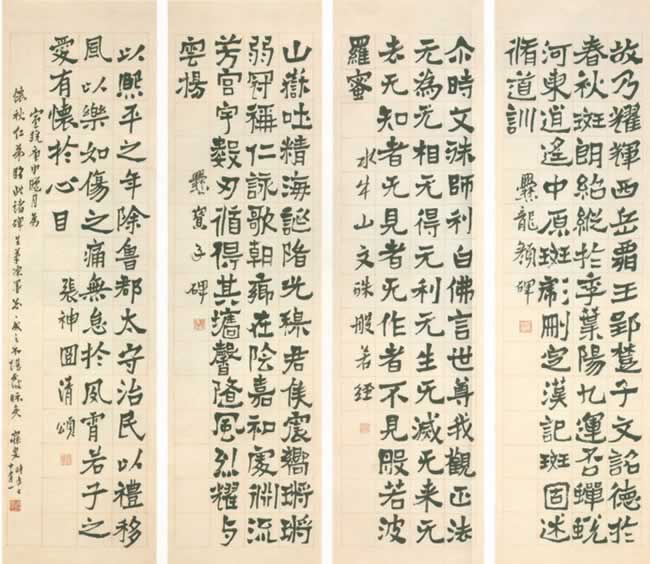 故乃耀輝西岳霸王郢楚子文詺德於
春秋斑朗紹縱於季葉陽九運否蟬蛻
河東逍遙中原斑彪刪定漢記斑固述
脩道訓
爨龍顏碑
尒時文殊師利白佛言世尊我觀正法
无為无相无得无利无生无滅无来无
去无知者无見者无作者不見般若波
羅蜜
水牛山文殊般若經
山嶽吐精海誕陏光穆君侯震嚮鏘鏘
弱冠稱仁詠歌朝鄉在陰嘉和處淵流
芳宮宇數刃循得其墻馨隨風烈耀与
雲揚
爨寶子碑
以熙平之年除魯郡太守治民以禮移
風以樂如傷之痛無怠於夙霄若子之
愛有懷於心目
張神冏清頌
宣統庚申臘月為
懷秋仁弟臨此諸碑 寐叟
時年七十有一